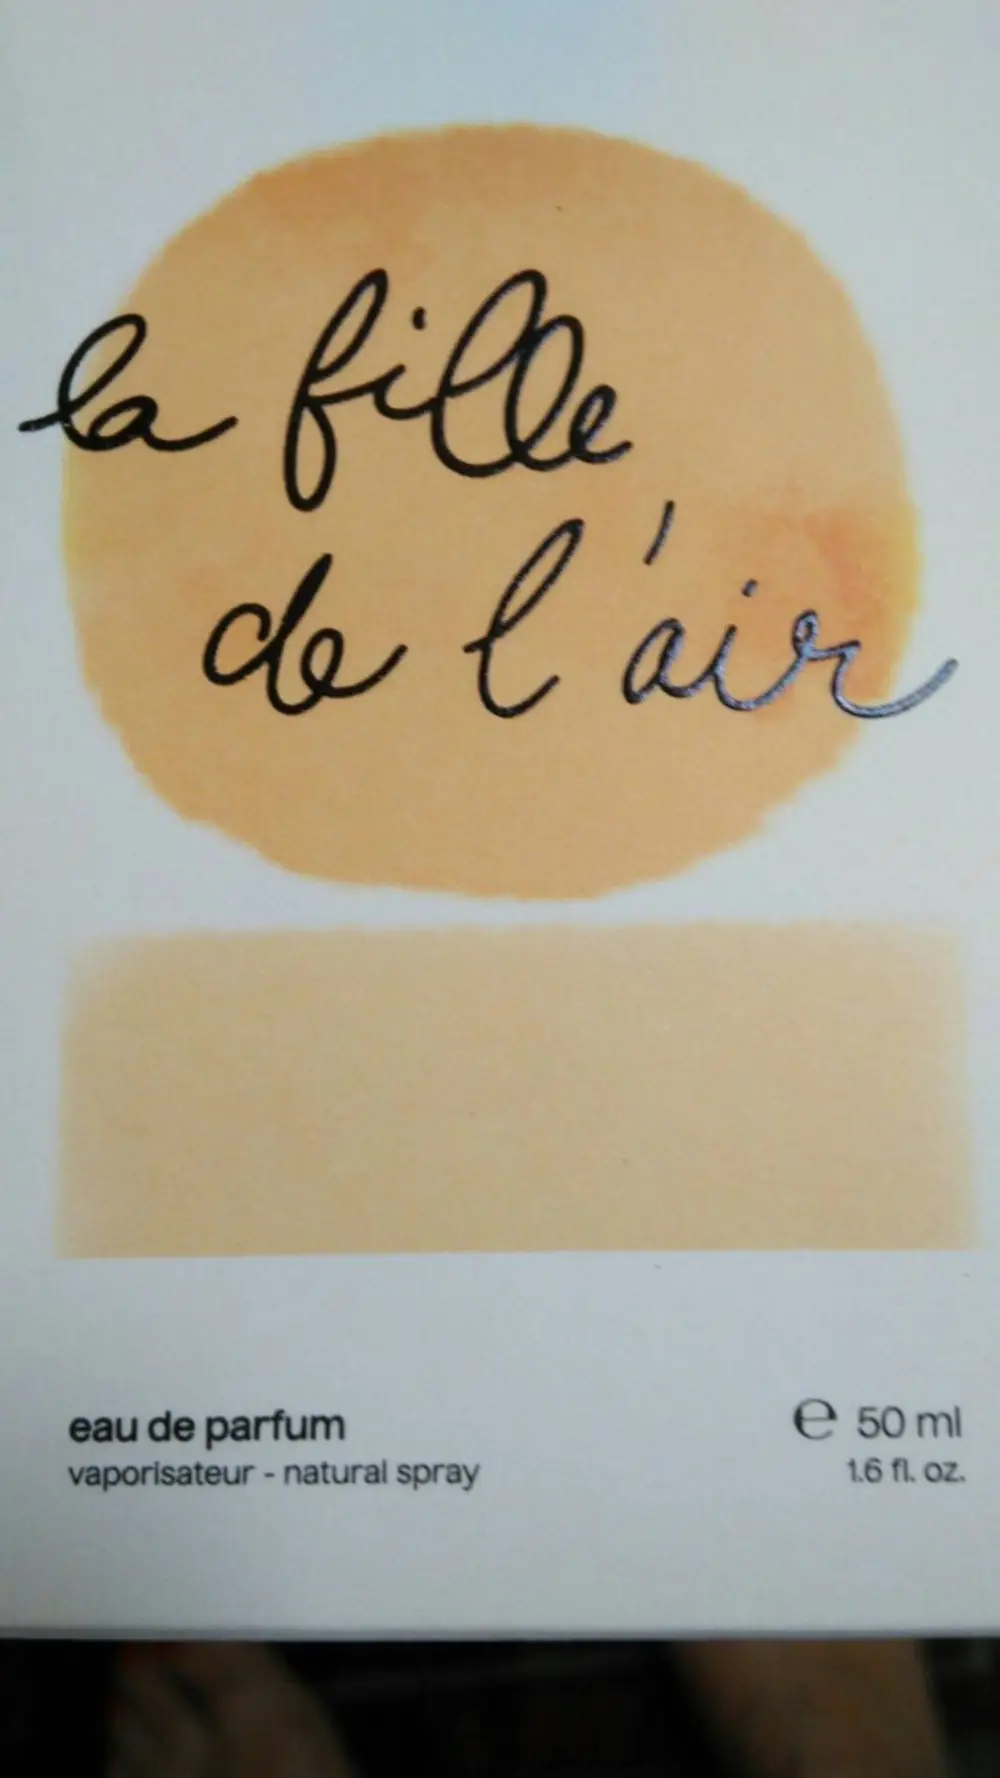 la fille
de l'air
eau de parfum
vaporisateur - natural spray
℮ 50 ml
1.6 fl. oz.